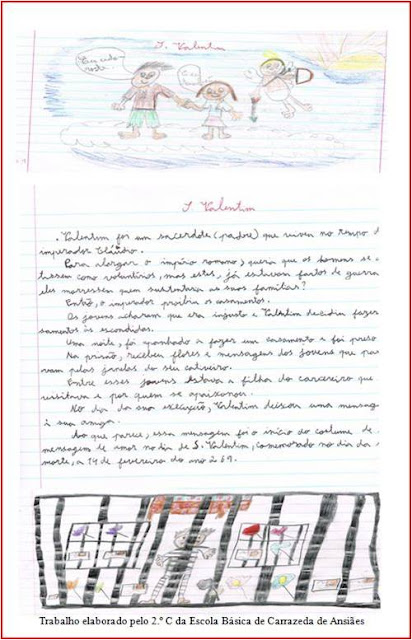 S. Valentim
S. Valentim
. Valentim foi um sacerdote (padre) que viveu no tempo d
imperador Cláudio.
Para alargar o império romano, queria que os homens se a
tassem como voluntários, mas estes, já estavam fartos de guerra
eles morressem quem sustentaria as suas famílias?
Então, o imperador proibiu os casamentos.
Os jovens acharam que era injusto e Valentim decidiu fazer
samentos às escondidas.
Uma noite, foi apanhado a fazer um casamento e foi preso
Na prisão, recebeu flores e mensagens dos jovens que pas
vam pelas janelas do seu cativeiro.
Entre esses jovens estava a filha do carcereiro que
visitava e por quem se apaixonou.
No dia da sua execução, Valentim deixou uma mensag
à sua amiga.
Ao que parece, essa mensagem foi o início do costume de
mensagens de amor no dia de S. Valentim, comemorado no dia da
morte, a 14 de fevereiro do ano 269.
Trabalho elaborado pelo 2.º C da Escola Básica de Carrazeda de Ansiães